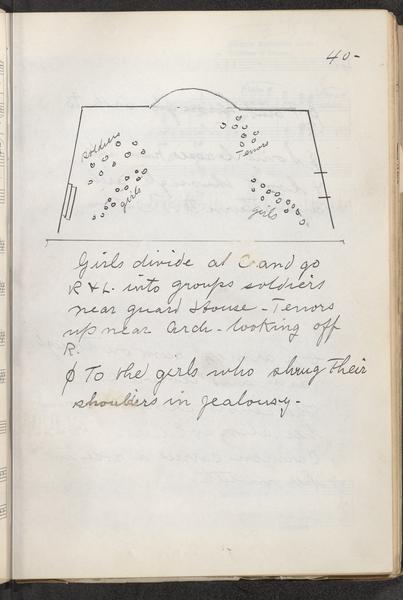 40-
soldiers
Tenors
girls
girls
Girls divide at C and go
R & L. into groups soldiers
near guard House - Tenors
up near Arch - looking off
R.
ϕ To the girls who shrug their
shoulders in jealousy -